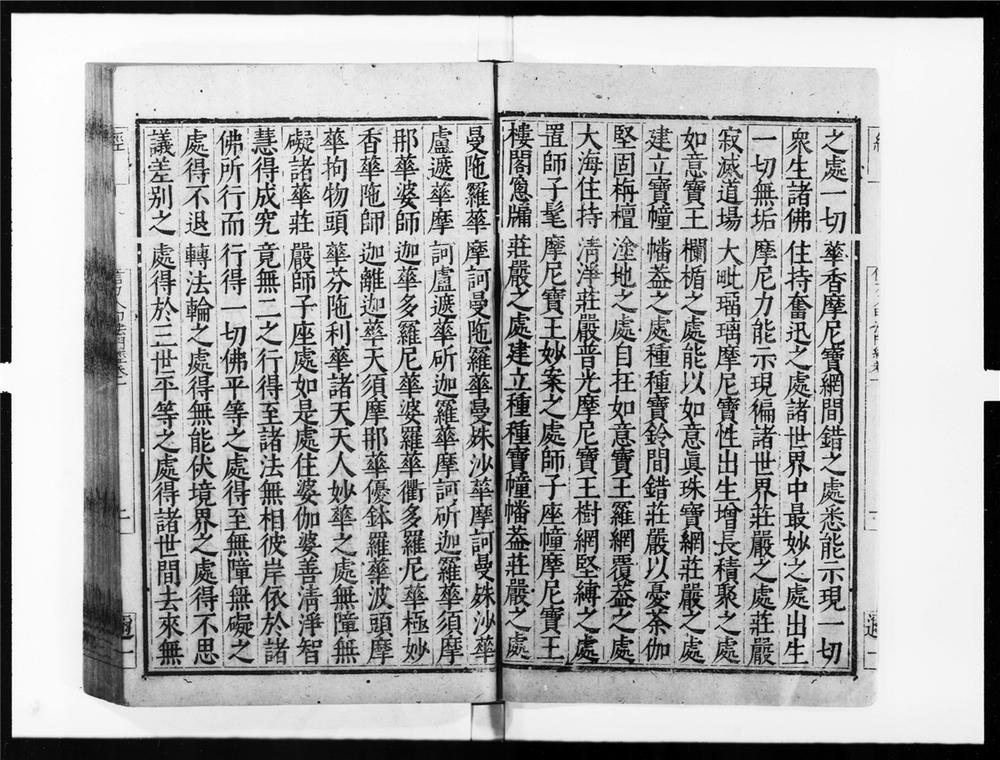 之處一切華香摩尼寶網間錯之處悉能示現一切
衆生諸佛住持奮迅之處諸世界中最妙之處出生
一切無垢摩尼力能示現徧諸世界莊嚴之處莊嚴
寂滅道場大毗瑠璃摩尼寶性出生增長積聚之處
如意寶王欄楯之處能以如意眞珠寶網莊嚴之處
建立寶幢幡葢之處種種寶鈴間錯莊嚴以憂荼伽
堅固栴檀塗地之處自在如意寶王羅網覆葢之處
大海住持清淨莊嚴普光摩尼寶王樹網堅縛之處
置師子髦摩尼寶王妙案之處師子座幢摩尼寶王
樓閣窻牖莊嚴之處建立種種寶幢幡葢莊嚴之處
曼陁羅華摩訶曼陁羅華曼姝沙華摩訶曼姝沙華
盧遮華摩訶盧遮華斫迦羅華摩訶斫迦羅華須摩
那華婆師迦華多羅尼華婆羅華衢多羅尼華極妙
香華陁師迦離迦華天須摩那華優鉢羅華波頭摩
華拘物頭華芬陁利華諸天天人妙華之處無障無
礙諸華莊嚴師子座處如是處住婆伽婆善清淨智
慧得成究竟無二之行得至諸法無相彼岸依於諸
佛所行而行得一切佛平等之處得至無障無礙之
處得不退轉法輪之處得無能伏境界之處得不思
議差別之處得於三世平等之處得諸世間去來無